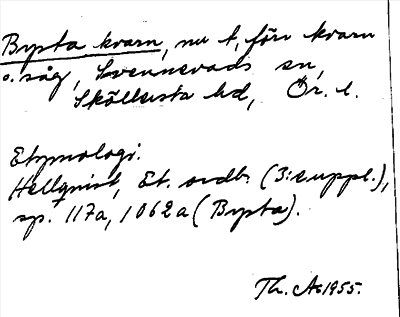 Bysta kvarn, nu t, förr kvarn
o. såg, Svennevads sn,
Sköllersta hd, Ör. l.
Etymologi:
Hellquist, Et. ordb. (3:e uppl.),
sp. 117a, 1062a (Bysta).
Th. A. 1955.